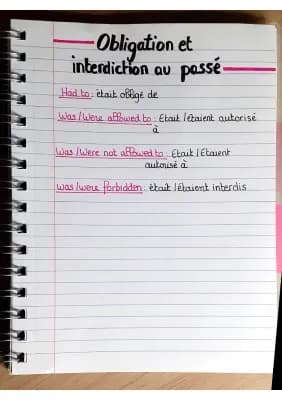 Obligation et
interdiction au passé
Had to : était obligé de
Was/Were allowed to : Etait / étaient autorisé
à
Was/Were not allowed to : Etait / Etaient
autorisé à
Was/were forbidden : était / étaient interdis